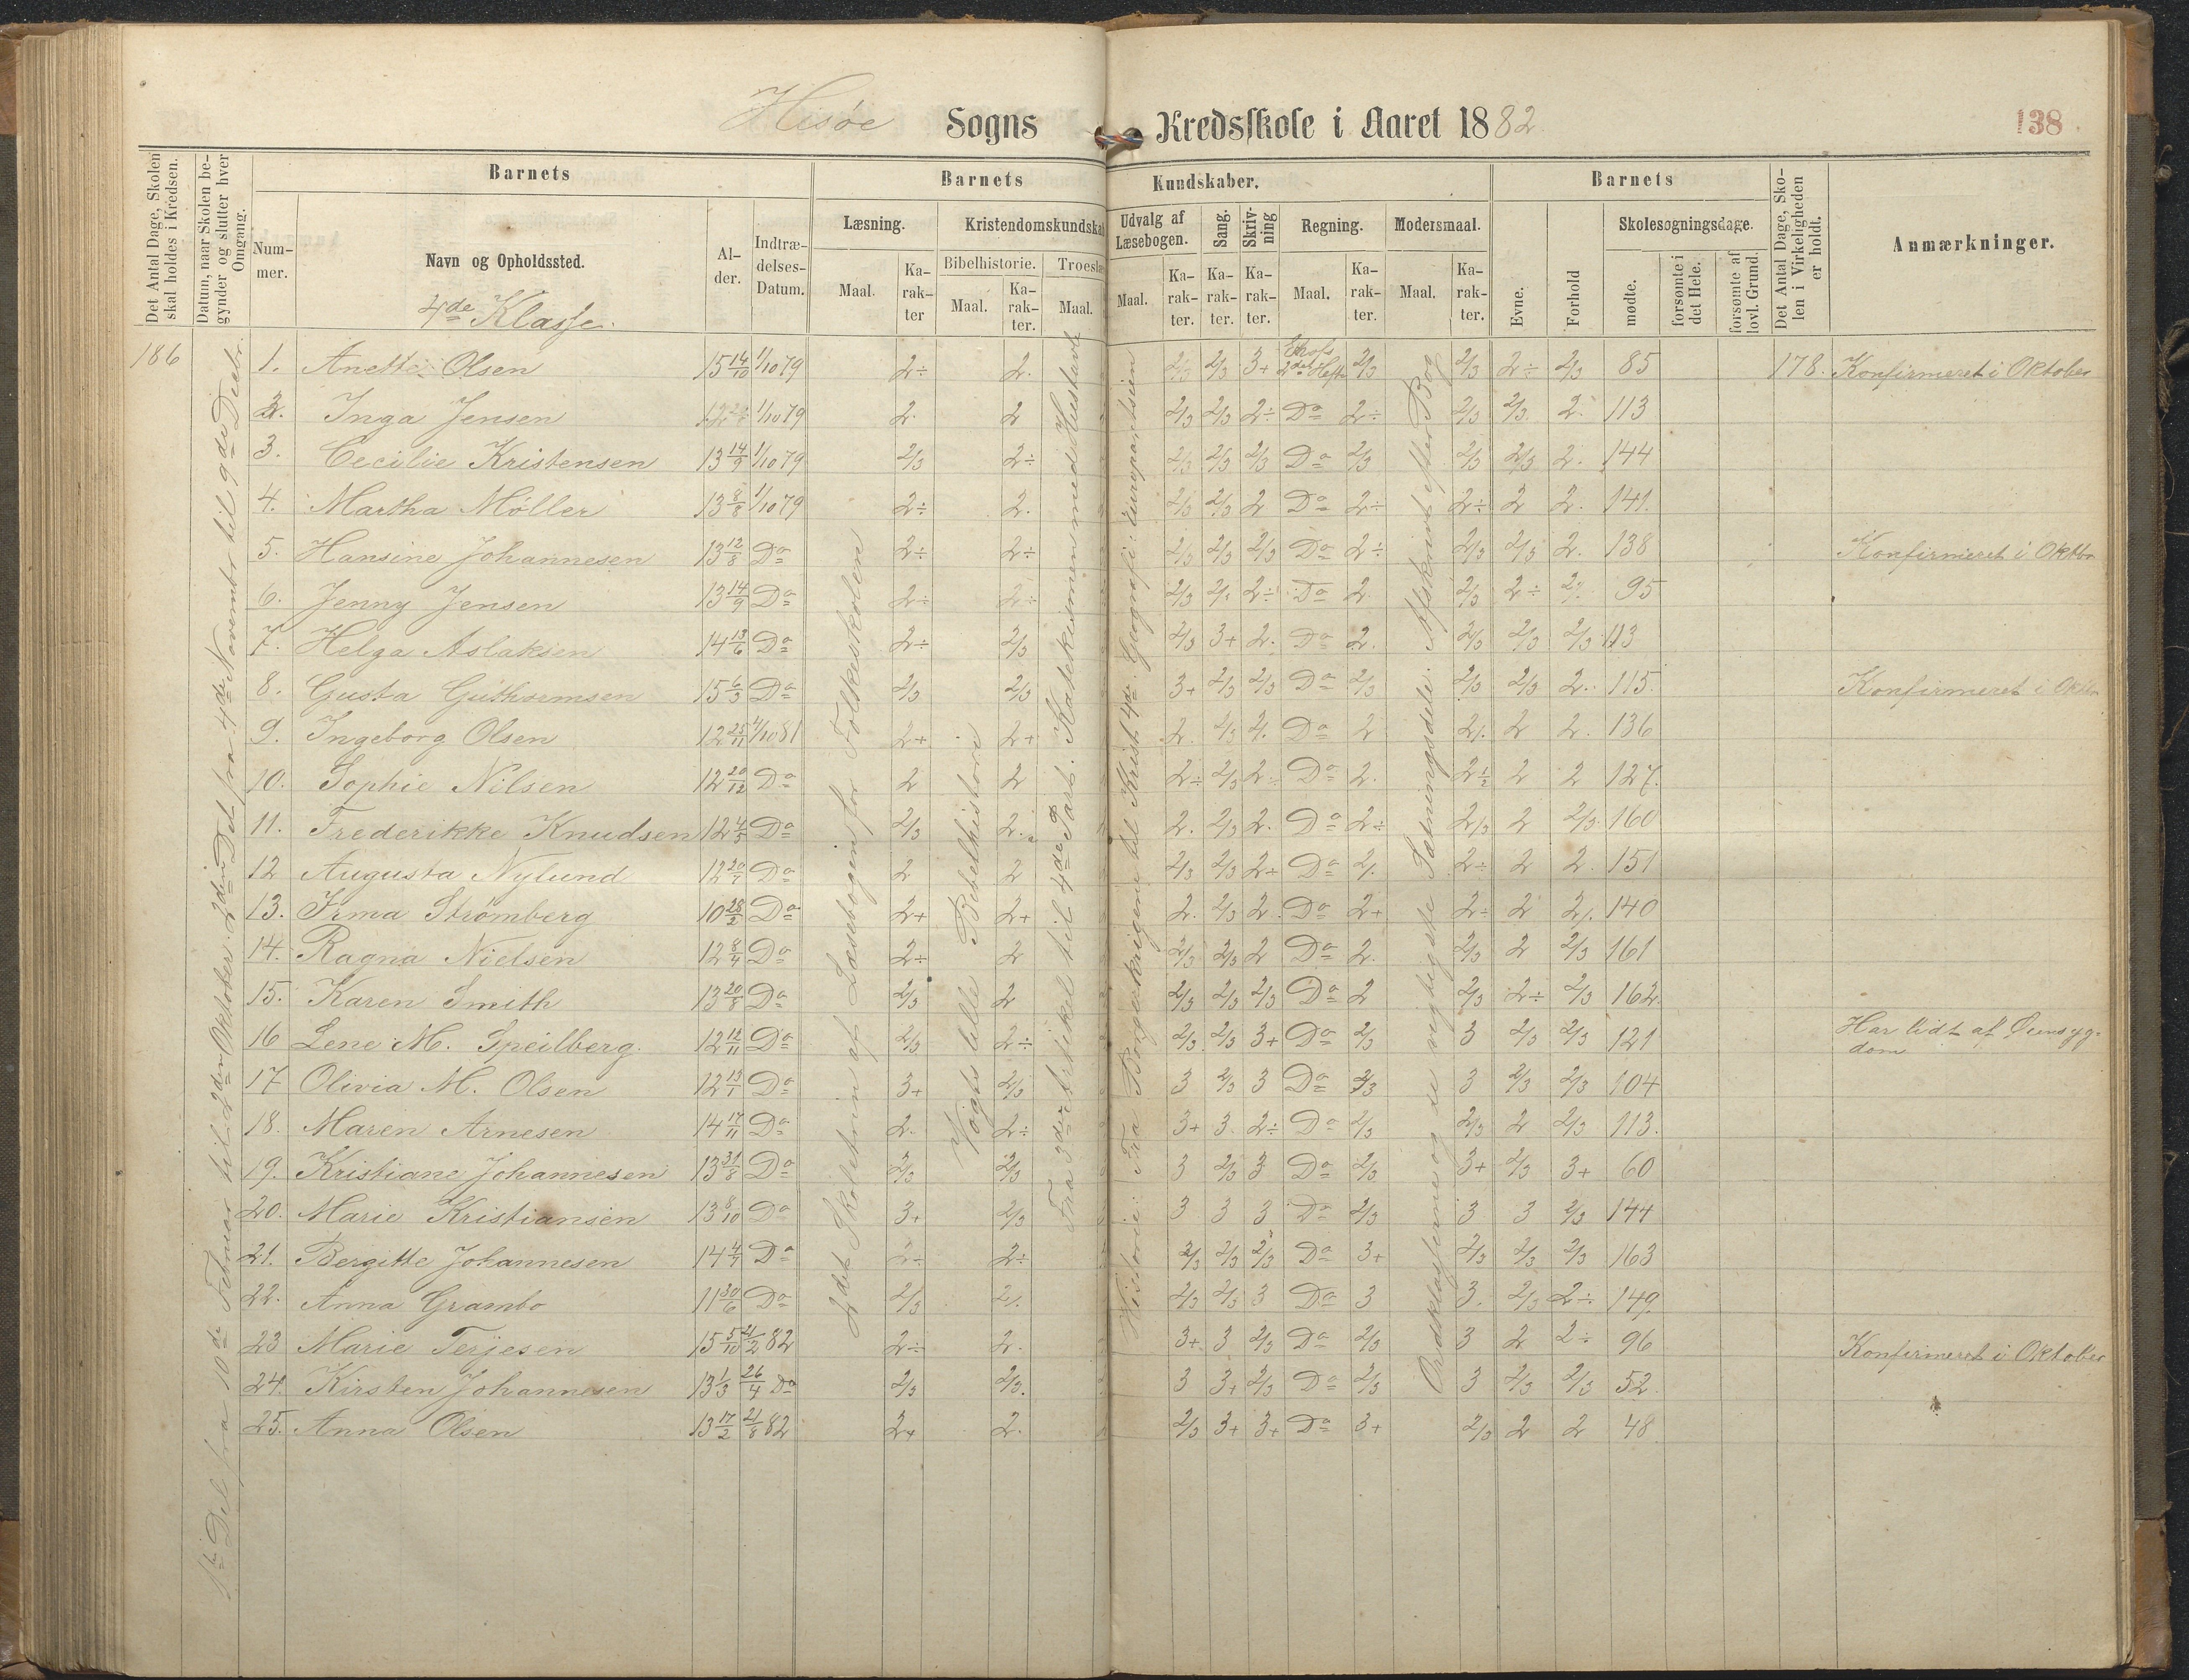 Hisøe Sogns Kredsskole i Aaret 1882
138
Det Antal Dage, Skolen skal holdes i Kredsen.
Datum, naar Skolen begynder og slutter hver Omgang.
Barnets
Barnets Kundskaber.
Barnets
Det Antal Dage, Skolen i Virkeligheden er holdt.
Anmærkninger.
Nummer.
Navn og Opholdssted.
Alder.
Indtrædelses-Datum.
Læsning.
Kristendomskundskab
Udvalg af Læsebogen.
Sang.
Skrivning
Regning.
Modersmaal.
Evne.
Forhold
Skolesøgningsdage.
Maal.
Karakter
Bibelhistorie.
Troeslære
Maal.
Karakter.
Maal.
Maal.
Karakter.
Karakter.
Karakter.
Maal.
Karakter.
Maal.
Karakter.
mødte.
forsømte i det Hele.
forsømte af lovl. Grund.
4de Klasse.
186
1ste Del fra 10de Februar til 2den Oktober. 2den Del fra 4de Novembr til 9de Decbr.
2det Skoletrin af Læsebogen for Folkeskolen
Vogts lille Bibelhistorie
Fra 3die Artikel til 4de Part. Katekismen med Hustavle
Historie: Fra Borgerkrigene til Krist. 4de. Geografi: Europa
Ordklasserne og de vigtigste Sætningsdele. Afskrivt efter Bog
1. Anette Olsen 15 14/10 1/10 79 2÷ 2. 2/3 2/3 3+ 2det Hefte 2/3 2/3 2÷ 2/3 85 178. Konfirmeret i Oktober
2. Inga Jensen 1/10 79 2. 2 2/3 2/3 2÷ Do 2÷ 2/3 2/3. 2. 113
3. Cecilie Kristensen 13 14/9 1/10 79 2/3 2÷ 2/3 2/3 2/3 Do 2/3 2/3 2/3 2. 144
4. Martha Møller 13 8/8 1/10 79 2÷ 2. 2/3 2/3 2 Do 2÷ 2÷ 2 2. 141.
5. Hansine Johannesen 13 12/8 Do 2÷ 2÷ 2/3 2/3 2/3 Do 2÷ 2/3 2/3 2. 138 Konfirmeret i Oktbr
6. Jenny Jensen 13 14/9 Do 2÷ 2÷ 2/3 2/. 2÷ Do 2 2/3 2÷ 2/. 95
7. Helga Aslaksen 14 13/6 Do 2÷ 2/3 2/3 3+ 2. Do 2. 2/3 2/3 2/3 113
8. Gusta Guthormsen 15 6/3 Do 2/3 2/3 3+ 2/3 2/3 Do 2/3 2/3 2/3 2. 115. Konfirmeret i Oktbr
9. Ingeborg Olsen 12 25/11 4/10 81 2+ 2+ 2. 2/3 2/. Do 2 2/. 2 2. 136
10. Sophie Nilsen 12 20/12 Do 2 2 2÷ 2/3 2÷ Do 2. 2½ 2 2 127.
11. Frederikke Knudsen 12 4/5 Do 2/3 2. 2. 2/3 2. Do 2÷ 2/3 2 2/3. 160
12 Augusta Nylund 12 20/7 Do 2 2 2/3 2/3 2+ Do 2/. 2÷ 2 2. 151
13. Irma Strømberg 10 28/2 Do 2+ 2+ 2. 2/3 2. Do 2+ 2÷ 2 2/. 140
14. Ragna Nielsen 12 8/4 Do 2÷ 2 2/3 2/3 2 Do 2. 2/3 2 2/3 161
15. Karen Smith 13 20/8 Do 2/3 2 2/3 2/3 2/3 Do 2 2/3 2÷ 2/3 162.
16 Lene M. Speilberg. 12 12/11 Do 2/3 2÷ 2/3 2/3 3+ Do 2/3 3 2/3 2/3 121 Har lidt af Øiensygdom
17 Olivia M. Olsen 12 13/1 Do 3+ 2/3 3 2/3 3 Do 2/3 3 2/3 2/3 104
18. Maren Arnesen 14 17/11 Do 2. 2÷ 3+ 3. 2÷ Do 2/3 2/3 2 2/3 113.
19. Kristiane Johannesen 13 31/8 Do 2/3 2/3 3 2/3 3 Do 2/3 3+ 2/3 3+ 60
20. Marie Kristiansen 13 8/10 Do 3+ 2/3 3 3 3 Do 2/3 3 3 2/3 144
21. Bergitte Johannesen 14 4/7 Do 2÷ 2÷ 2/3 2/3 2/3 Do 3+ 2/3 2/3 2/3 163
22. Anna Grambo 11 30/6 Do 2/3 2/. 2/3 2/3 3 Do 3 3. 2/3 2÷ 149.
23 Marie Terjesen 15 5/10 21/2 82 2÷ 2. 3+ 3 2/3 Do 2/3 3 2 2÷ 96 Konfirmeret i Oktober
24. Kirsten Johannesen 13 1/3 26/4 Do 2/3 2/3. 3 3+ 2/3 Do 2/3 3 2/3 2/3 52.
25. Anna Olsen 13 17/2 21/8 82 2+ 2. 2/3 3+ 3+ Do 3+ 2/3 2 2 48